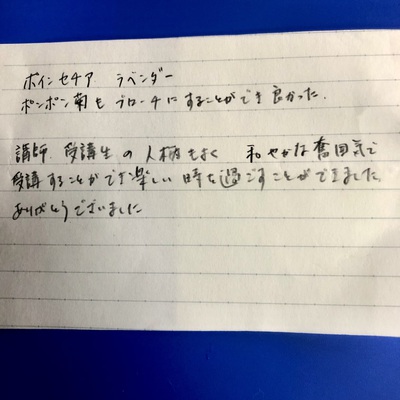 ポインセチア ラベンダー
ポンポン菊も ブローチにすることができ良かった.
講師、受講生の人柄もよく 和やかな奮囲気で
受講することができ楽しい時を過ごすことができました
ありがとうございました